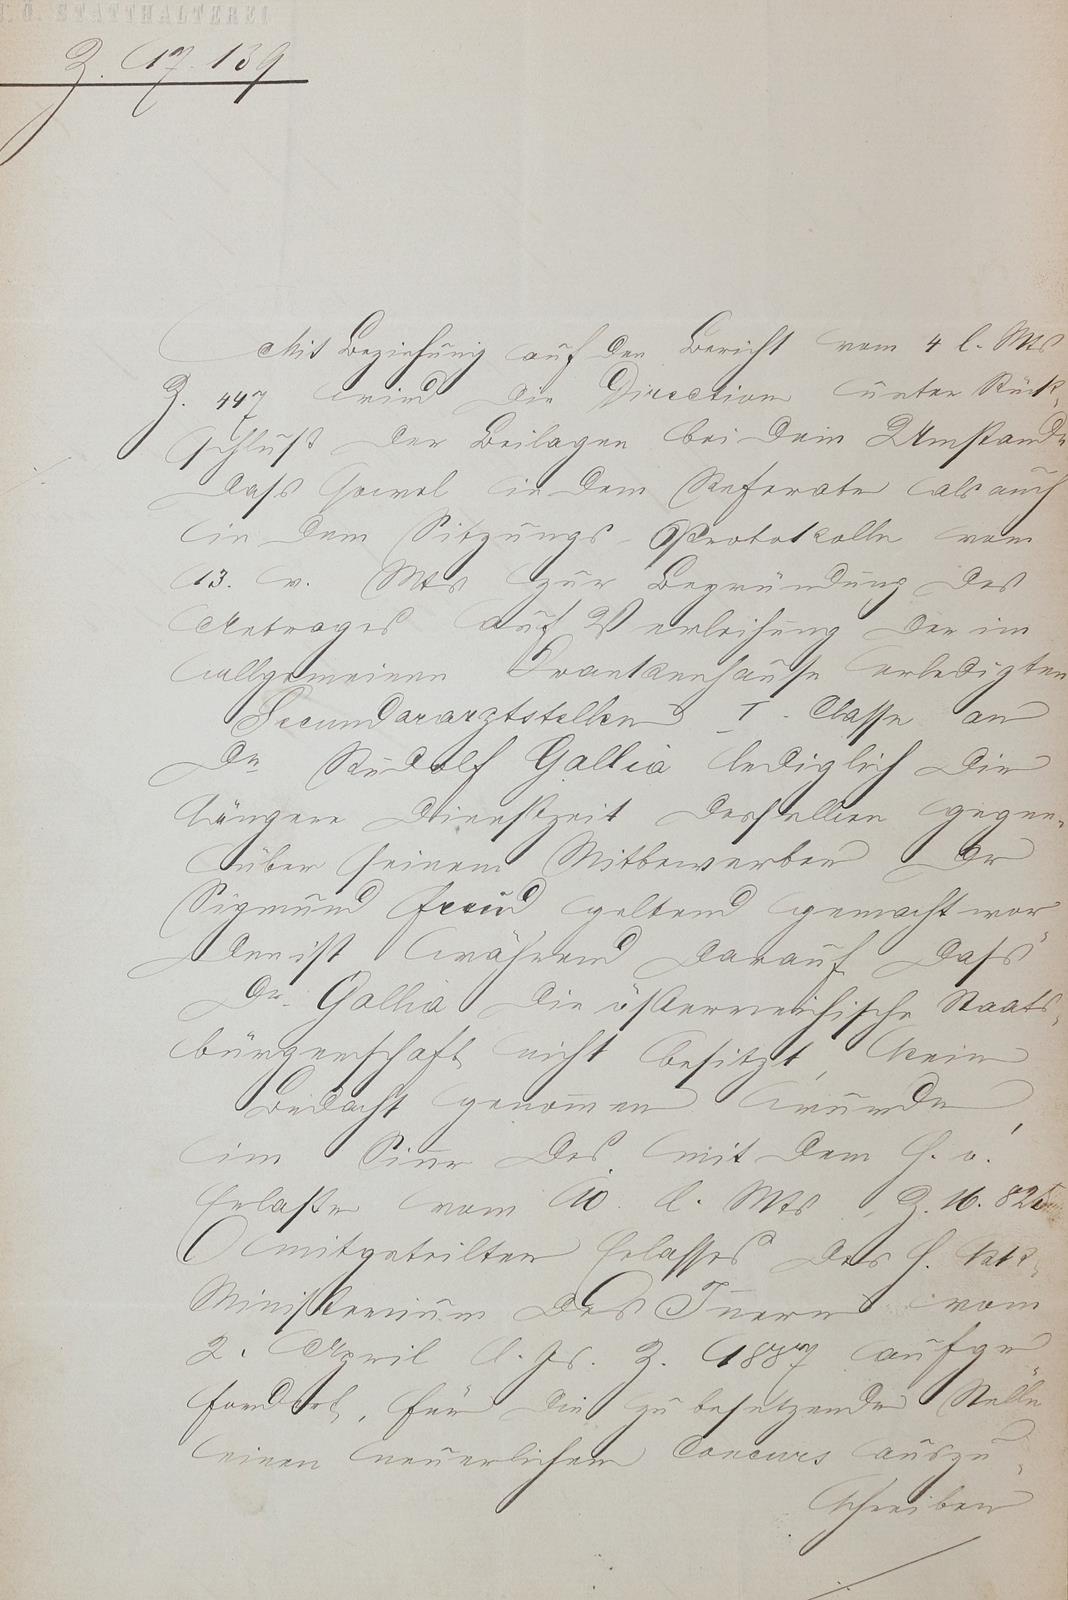 N. Ö. STATTHALTEREI
Z. 17.139
Mit Beziehung auf den Bericht vom 4 l. Mts
Z. 447 wird die Direction unter Rück-
schluß der Beilagen bei dem Umstande
dass sowol in dem Referate als auch
in dem Sitzungs-Protokolle vom
13. v. Mts zur Begründung des
Antrages auf Verleihung der im
allgemeinen Krankenhause erledigten
Secundararztstelle I. Classe an
Dr Rudolf Gallia lediglich die
längere Dienstzeit desselben gegen-
über seinem Mitbewerber Dr
Sigmund Freud geltend gemacht wor
den ist während darauf dass
Dr. Gallia die österreichische Staats-
bürgerschaft nicht besitzt, kein
Bedacht genom̄en wurde,
im Sin̄e des mit dem h. o.
Erlaße vom 10. l. Mts, Z. 16.825
mitgeteilten Erlasses des h. kk.
Ministerium des In̄ern vom
2. April l. Js. Z. 1887 aufge
fordert, für die zu besetzende Stelle
einen neuerlichen Concurs auszu-
schreiben